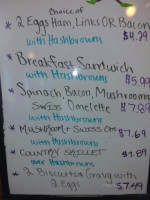 Choice of
* 2 Eggs Ham, Links OR Bacon
with Hashbrowns $4.29
* Breakfast Sandwich
with Hashbrowns $5.99
* Spinach, Bacon, Mushroom
Swiss Omelette $7.89
with Hashbrowns
* Mushroom & Swiss Om $7.69
with Hashbrowns
* Country Skillet $7.89
over Hashbrowns
* 2 Biscuits & Gravy with
2 Eggs $7.49